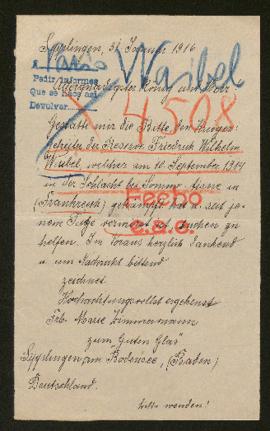 Sipplingen, 31 Januar 1916
Paris
Waibel
Pedir informes
Que se hace así
Devolver
X 4508
Allergnädigster König und Herr
Gestatte mir die Bitte den Kriegs-
der Reserve Friedrich Wilhelm
Waibel, welcher am 10. September 1914
in der Schlacht bei Somme
(Frankreich) gekämpft hat u. seit
jenem Tage vermißt ist, suchen zu
helfen. Im Voraus herzlich dankend
u. um Nachricht bittend
Fecho
e.a.e.
zeichnet
Hochachtungsvollst ergebenst
Frl. Marie Zimmermann
zum Guten Glas
Sipplingen am Bodensee, (Baden)
Deutschland.
bitte wenden!